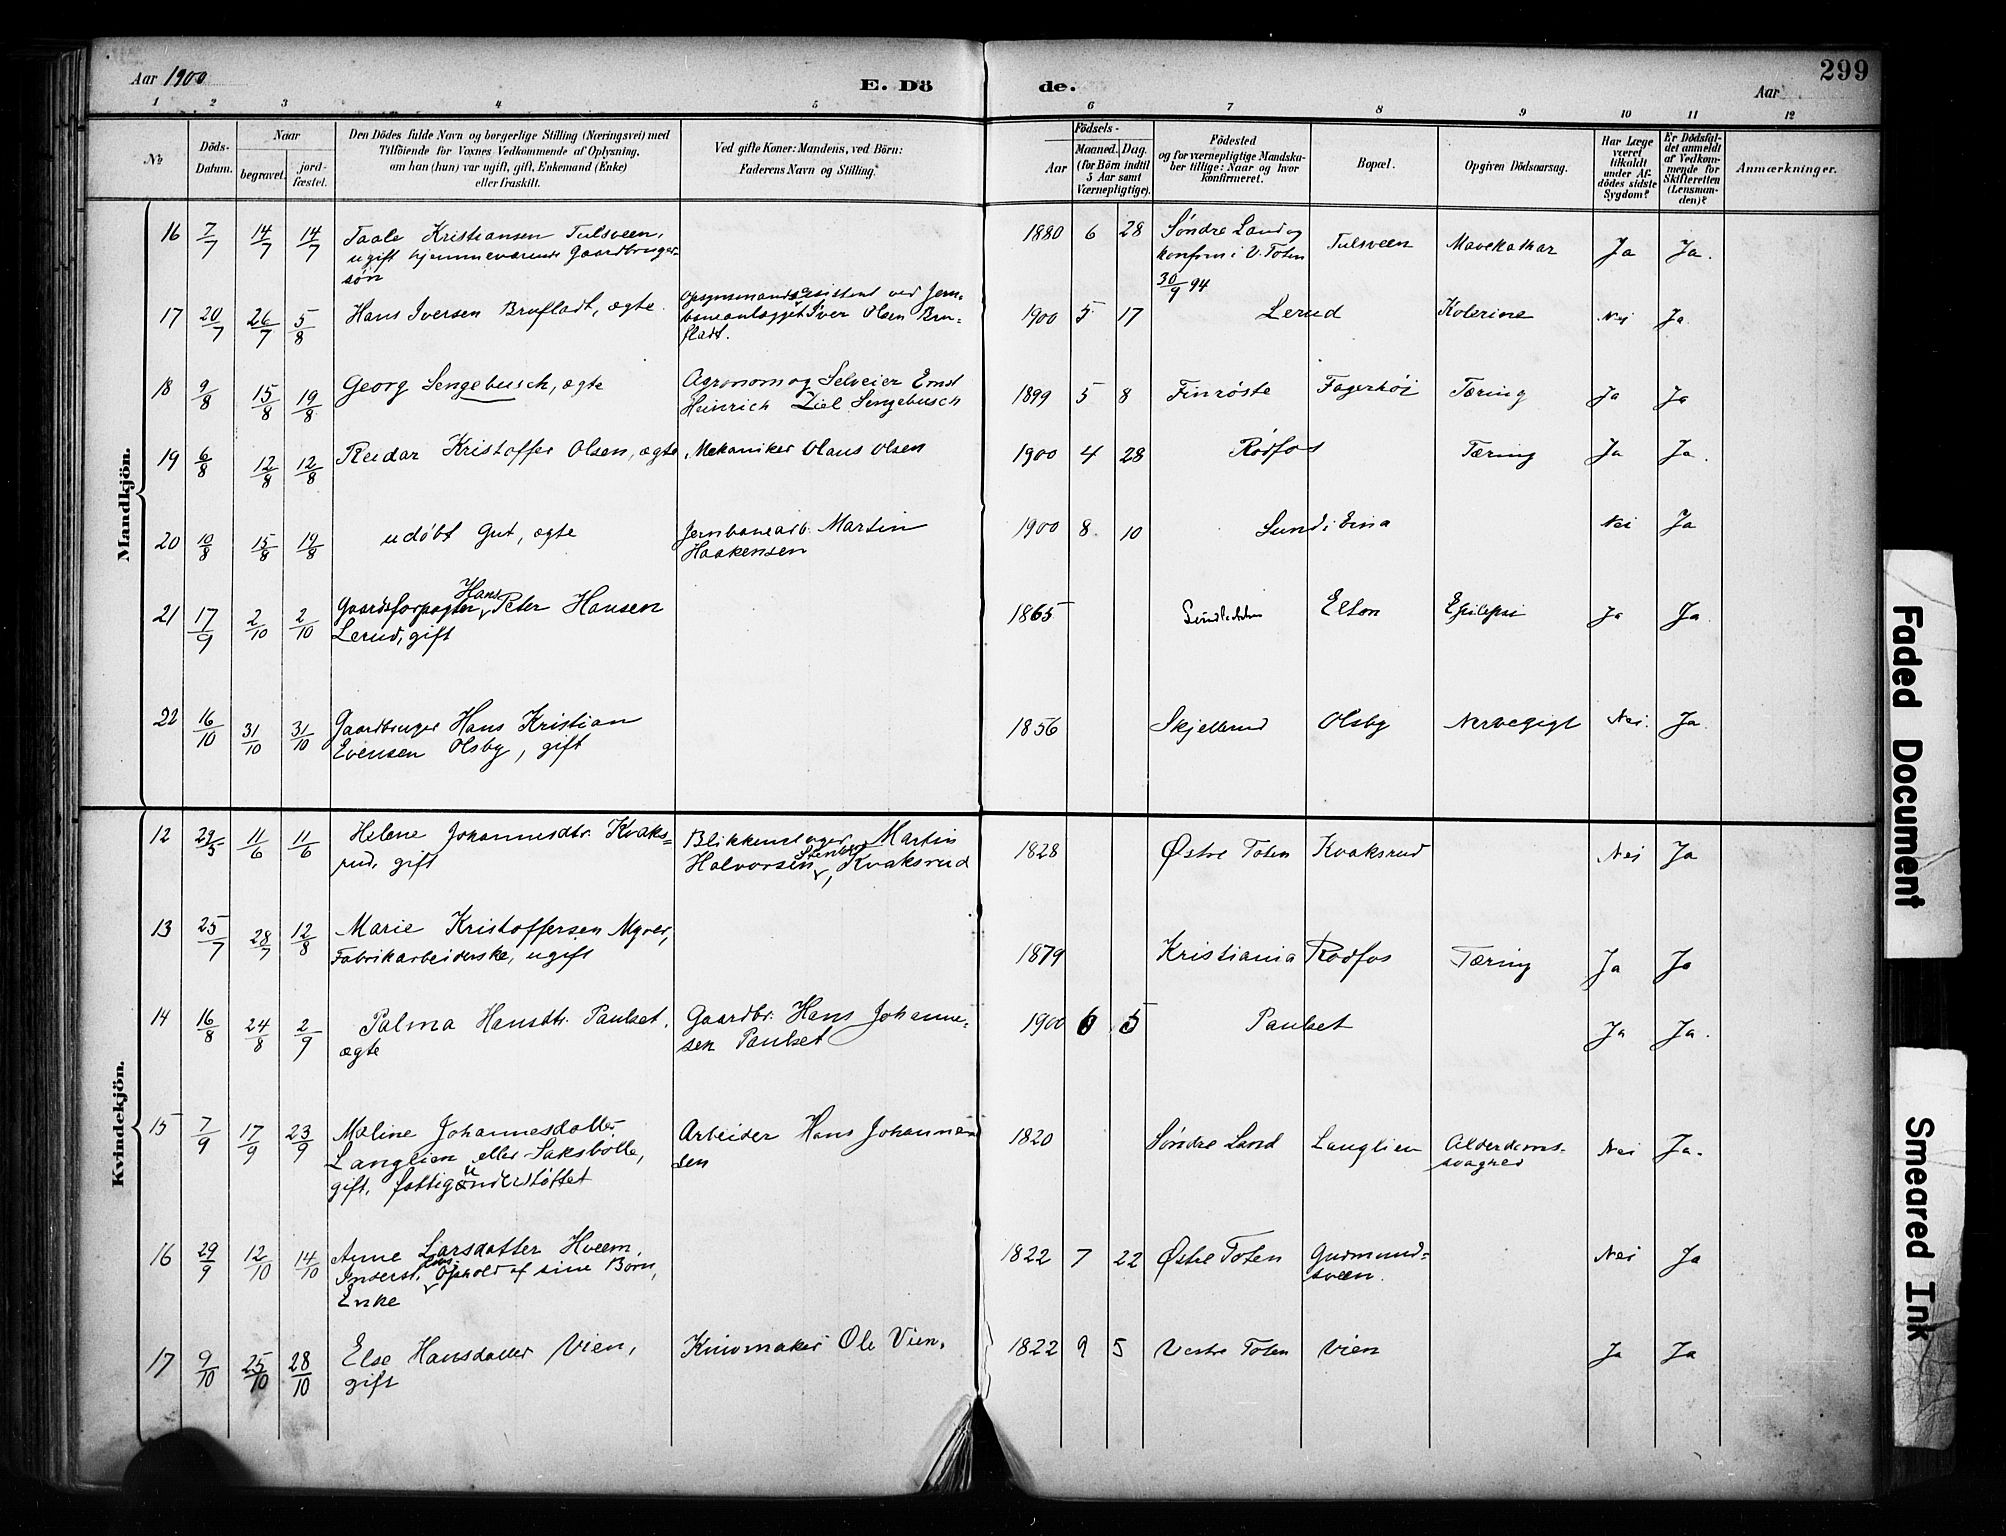 Aar 1900
E. Dö
de.
Aar
299
1 2 3 4 5 6 7 8 9 10 11 12
No
Döds-
Datum.
Naar
begravet.
jord-
fæstet.
Den Dödes fulde Navn og borgerlige Stilling (Næringsvei) med
Tilföiende for Voxnes Vedkommende af Oplysning,
om han (hun) var ugift, gift, Enkemand (Enke)
eller fraskilt.
Ved gifte Koner: Mandens, ved Börn:
Faderens Navn og Stilling.
Födsels-
Aar
Maaned. Dag.
(for Börn indtil
5 Aar samt
Værnepligtige).
Födested
og for værnepligtige Mandska-
ber tillige: Naar og hvor
konfirmeret.
Bopæl.
Opgiven Dödsaarsag.
Har Læge
været
tilkaldt
under Af-
dödes sidste
Sygdom?
Er Dödsfal-
det anmeldt
af Vedkom-
mende for
Skifteretten
(Lensman-
den)?
Anmærkninger.
Mandkjön.
16 7/7 14/7 14/7 Taale Kristiansen Tulsveen,
ugift hjemmeværende Gaardbruger-
søn
1880 6 28 Søndre Land og
konfirm i V. Toten
30/9 94
Tulsveen Mavekathar Ja Ja.
17 20/7 26/7 5/8 Hans Iversen Brufladt, ægte.
Opsynsmandsassistent ved Jern-
baneanlægget Iver Olsen Bru-
fladt.
1900 5 17 Lerud Kolerine Nei Ja
18 9/8 15/8 19/8 Georg Sengebusch, ægte
Agronom og Selveier Ernst
Heinrich Ziel Sengebusch
1899 5 8 Finrøste Fagerhøi Tæring Ja Ja
19 6/8 12/8 12/8 Reidar Kristoffer Olsen, ægte Mekaniker Olaus Olsen
1900 4 28 Rødfos Tæring Ja Ja.
20 10/8 15/8 19/8 udøbt Gut, ægte
Jernbanearb. Martin
Haakensen
1900 8 10 Sund i Eina Nei Ja
21 17/9 2/10 2/10 Gaardsforpagter Hans Peter Hansen
Lerud, gift
1865 Elton Epilepsi Ja Ja.
22 16/10 31/10 31/10 Gaardbruger Hans Kristian
Evensen Olsby, gift
1856 Skjellerud Olsby Nervegigt Nei. Ja.
Kvindekjön.
12 29/5 11/6 11/6 Helene Johannesdtr. Kvaks-
rud, gift
Blikkenslager Martin
Halvorsen Stenberg, Kvaksrud
1828 Østre Toten Kvaksrud Nei Ja
13 25/7 28/7 12/8 Marie Kristoffersen Myrer,
Fabrikarbeiderske, ugift
1879 Kristiania Rødfos Tæring Ja Ja
14 16/8 24/8 2/9 Palma Hansdtr. Paulset,
ægte
Gaardbr. Hans Johanne-
sen Paulset
1900 6 5 Paulset Ja Ja.
15 7/9 17/9 23/9 Maline Johannesdatter
Langlien eller Saksbølle,
gift, fattigunderstøttet
Arbeider Hans Johanne-
sen
1820 Søndre Land Langlien Alderdoms-
svaghed
Nei Ja.
16 29/9 12/10 14/10 Anne Larsdatter Hveem,
Inderst, Ophold af sine Børn,
Enke
1822 7 22 Østre Toten Gudmunds-
sveen.
Nei Ja
17 9/10 25/10 28/10 Else Hansdatter Vien,
gift
Knivmaker Ole Vien.
1822 9 5 Vestre Toten Vien Ja Ja
Faded Document
Smeared Ink